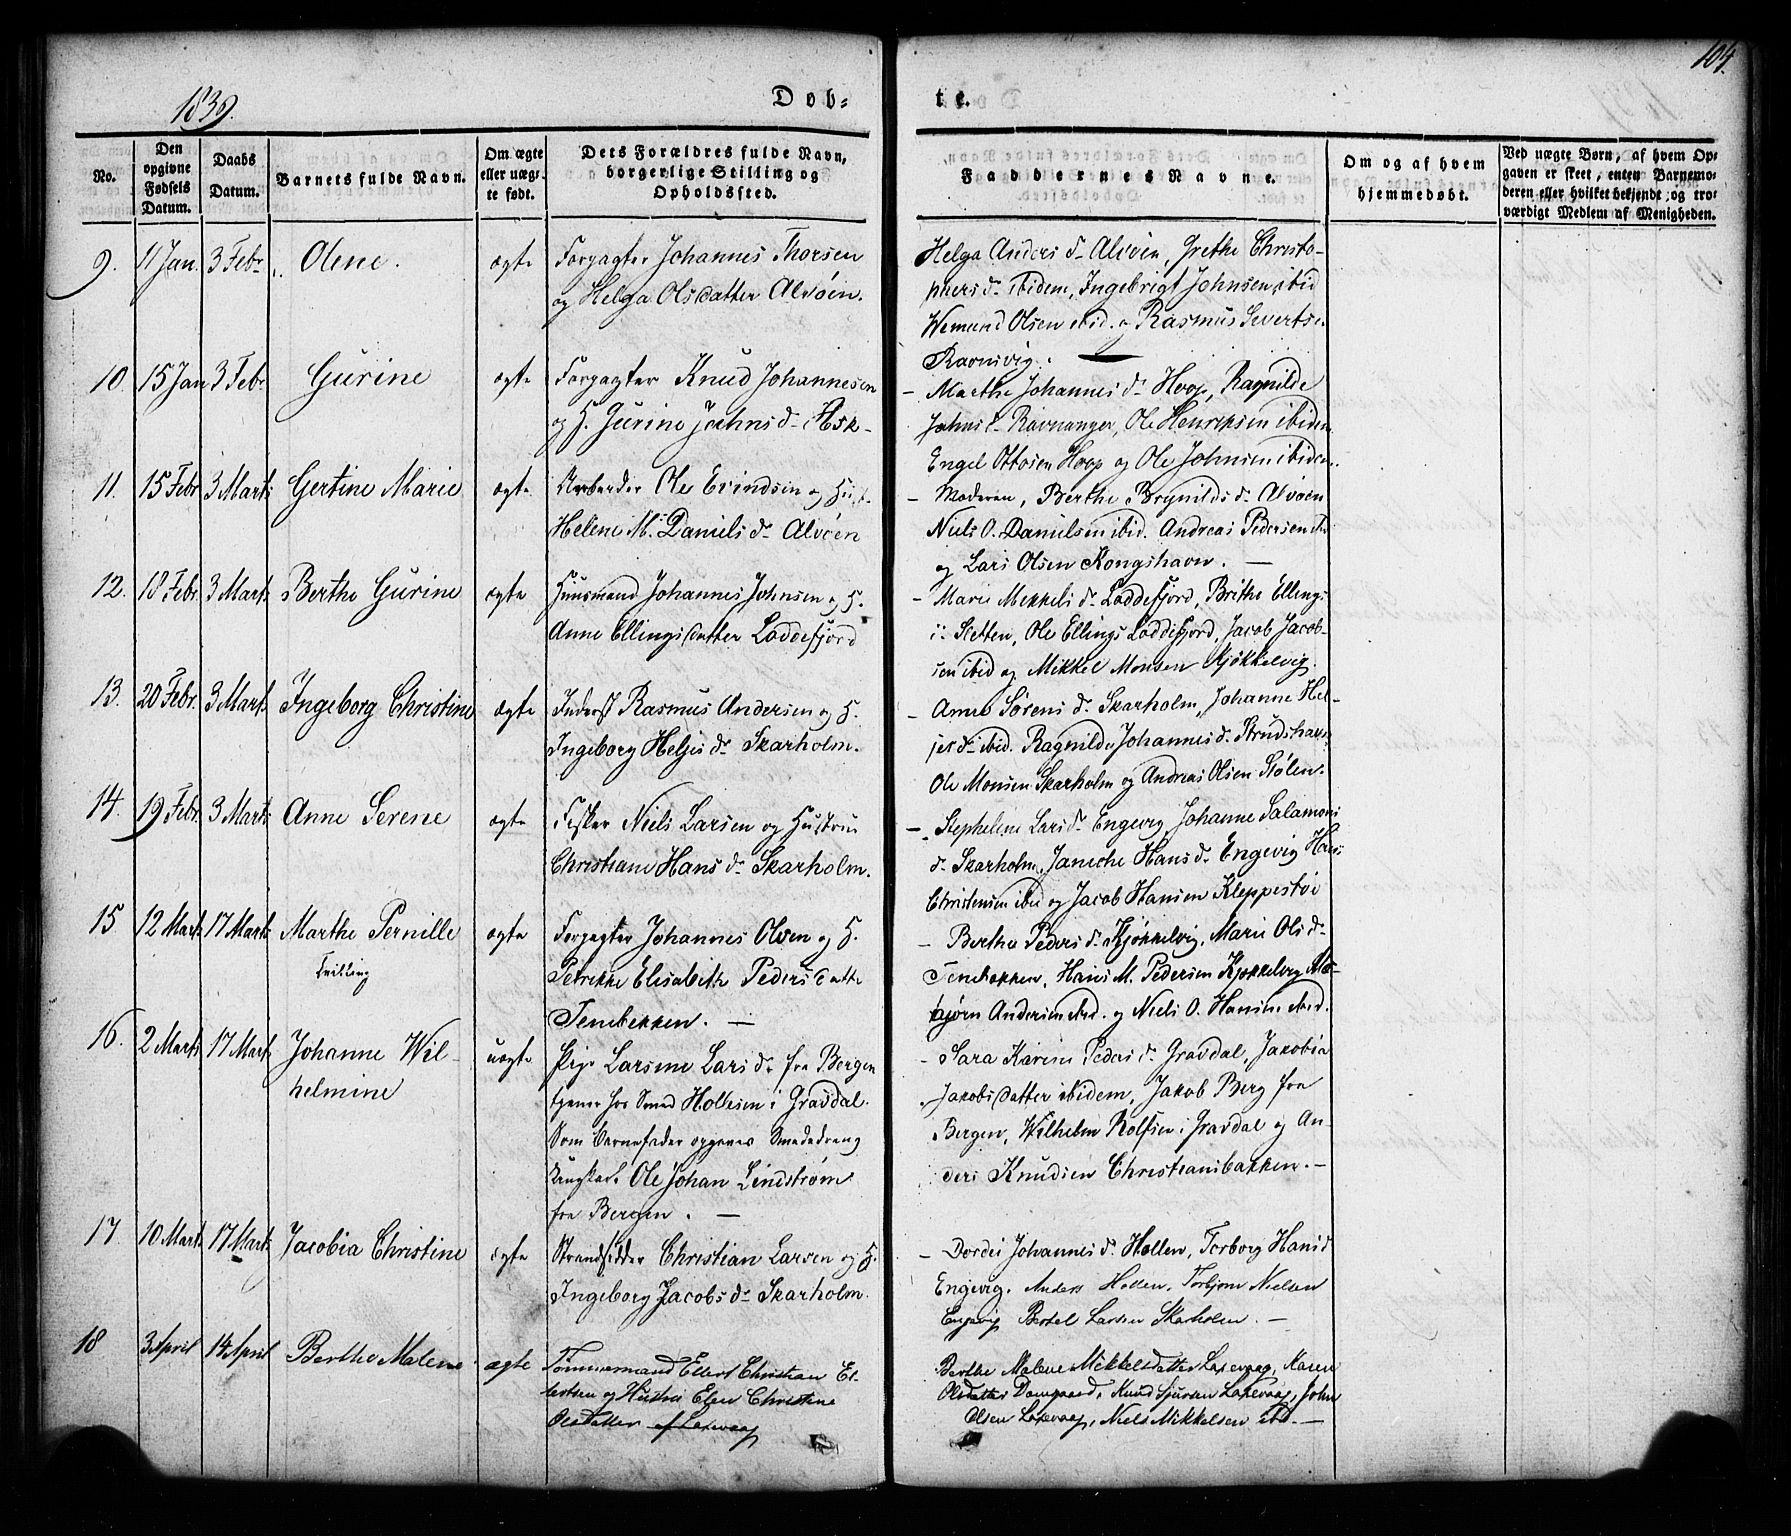 104.
1839.
Døb-
te.
No.
Den opgivne Fødsels Datum.
Daabs Datum.
Barnets fulde Navn.
Om ægte eller uægte født.
Dets Forældres fulde Navn, borgerlige Stilling og Opholdssted.
Faddernes Navne.
Om og af hvem hjemmedøbt.
Ved uægte Børn, af hvem Opgaven er skeet, enten Barnemoderen eller hvilket bekjendt og troværdigt Medlem af Menigheden.
9. 11 Jan. 3 Febr. Olene. ægte
Forpagter Johannes Thorsen
og Helga Olsdatter Alvøen.
Helga Anders d. Alvøen, Grethe Christo-
phers d. ibidem, Ingebrigt Johnsen ibid
Wemund Olsen ibid. og Rasmus Sivertse
Ravnsvig. —
10. 15 Jan 3 Febr. Gurine ægte
Forpagter Knud Johannesen
og H. Gurine Johns d. Ask-
— Marthe Johannes d. Hoop, Ragnilde
Johns d. Ravnanger, Ole Henriksen ibidem
Engel Ottosen Hoop og Ole Johnsen ibidem.
11. 15 Febr. 3 Marts Gertine Marie ægte
Arbeider Ole Erindsen og Hust.
Helene M. Daniels d. Alvøen
— Moderen, Berthe Brynilds d. Alvøen
Niels O. Danielsen ibid. Andreas Pedersen
og Lars Olsen Kongshavn. —
12. 18 Febr. 3 Mart. Berthe Gurine ægte
Huusmand Johannes Johnsen og H.
Anne Ellingsdatter Loddefjord
— Marie Mekkels d. Loddefjord, Brithe Ellings
d. Sletten, Ole Ellings Loddefjord, Jacob Jacob-
sen ibid og Mikkel Monsen Kjøkkelvig.
13. 20 Febr. 3 Mart. Ingeborg Christine ægte
Inderst Rasmus Andersen og H.
Ingeborg Heljes d. Skarholm.
— Anne Sørens d. Skarholm, Johanne Hel-
jes d. ibid. Ragnilde Johannes d. Strudshavn
Ole Monsen Skarholm og Andreas Olsen Stølen.
14. 19 Febr. 3 Marts Anne Serene ægte
Fisker Niels Larsen og Hustrue
Christiane Hans d. Skarholm.
— Stephelene Lars d. Engevig Johanne Salamons
d. Skarholm, Janiche Hans d. Engevig Hans
Christensen ibid og Jacob Hansen Kleppestøe
15 12 Mart. 17 Mart. Marthe Pernille ægte
Tvilling
Forpagter Johannes Olsen og H.
Petrikke Elisabeth Pedersdatter
Tenebekken. —
— Berthe Peders d. Kjøkkelvig, Marie Ols d.
Tenebekken, Hans M. Pedersen Kjøkkelvig
bjørn Andersen ibid. og Niels O. Hansen ibid.
16. 2 Marts 17 Mart. Johanne Wil-
helmine uægte
Pige Larsine Lars d. fra Bergen
tjener hos Smed Hollesen i Gravdal.
Som Barnefader opgives Smededreng
Ole Johan Lindstrøm
fra Bergen. —
— Sara Karine Peders d. Gravdal, Jakobia
Jakobsdatter ibidem, Jakob Berg fra
Bergen, Wilhelm Rolfsen i Gravdal og An-
ders Knudsen Christiansbakken. —
17 10 Mart. 17 Mart. Jacobia Christine ægte
Strandsidder Christian Larsen og H.
Ingeborg Jacobs d. Skarholm.
— Dordei Johannes d. Hollen, Torborg Hans d.
Engevig. Anders Hollen, Torbjørn Nielsen
Engevig Bertel Larsen Skarholm. —
18 3 April 14 April Berthe Malene ægte
Tømmermand Ellert Christian El-
lertsen og Hustru Elen Christine
Olsdatter af Laxevaag
Berthe Malene Mikkelsdatter Laxevaag, Karen
Olsdatter Damgaard, Knud Sjursen Laxevaag, John
Olsen Laxevaag, Niels Mikkelsen ibd. —